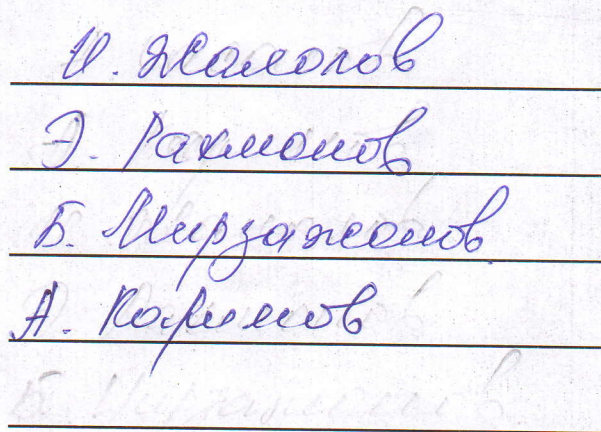 И. Жалолов
Э. Рахмонов
Б. Мирзажонов
А. Каримов